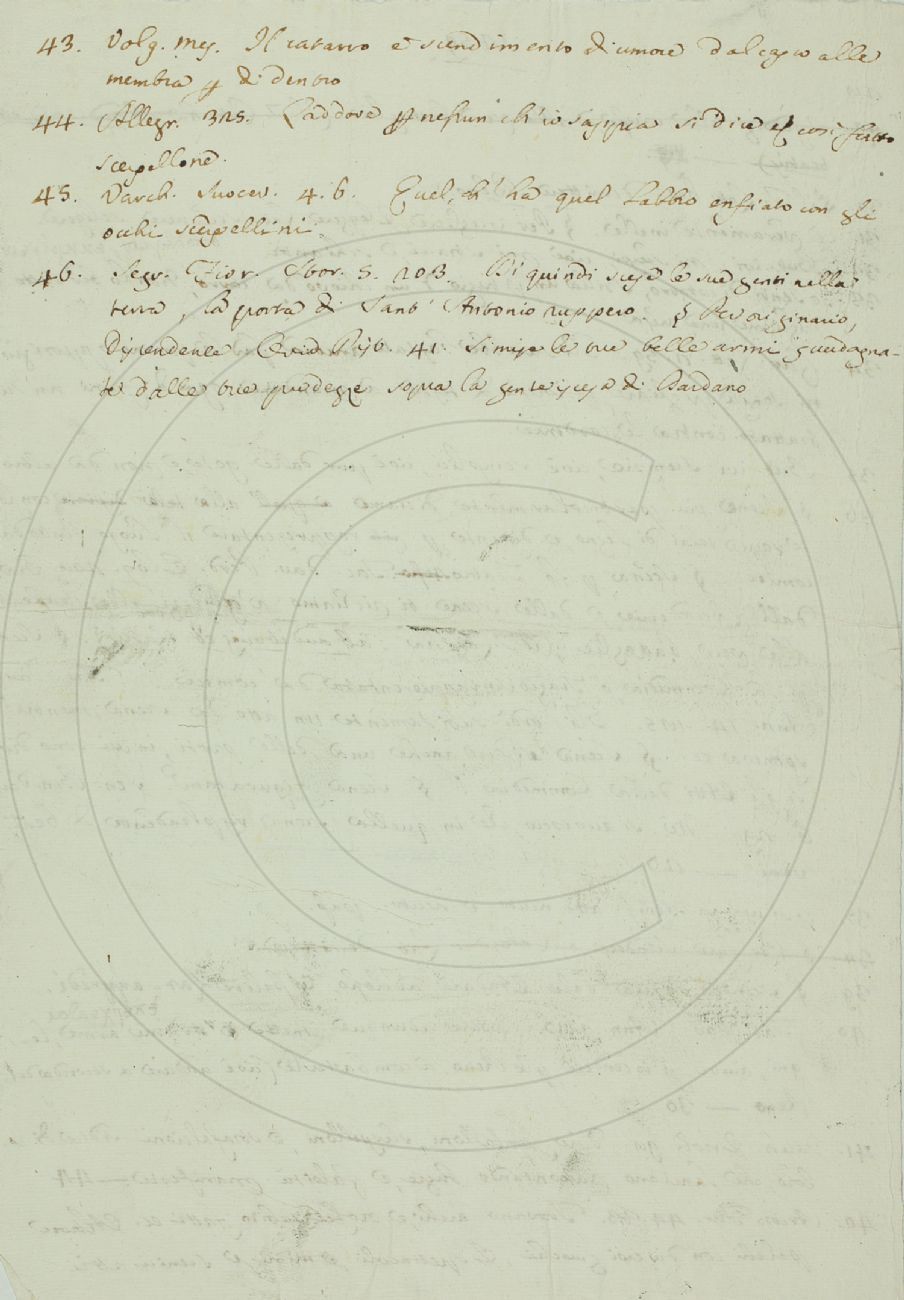 43. Volg. Mes. Il catarro è scendimento di umore dal capo alle
membra di dentro
44. Allegr. 325. Laddove nessun ch'io sappia si dice così fatto
scerpellone.
45. Varch. Suocer. 4. 6. Quel, ch' ha quel labbro enfiato con gli
occhi scerpellini.
46. Segr. Fior. Stor. 5. 203. Di quindi scese le sue genti nella
terra, la porta di Sant' Antonio ruppero. § Per originario,
Dipendente Ovid. Pist. 41. Si mise le tue belle armi guadagna-
te dalle tue prodezze sopra la gente scesa di Dardano